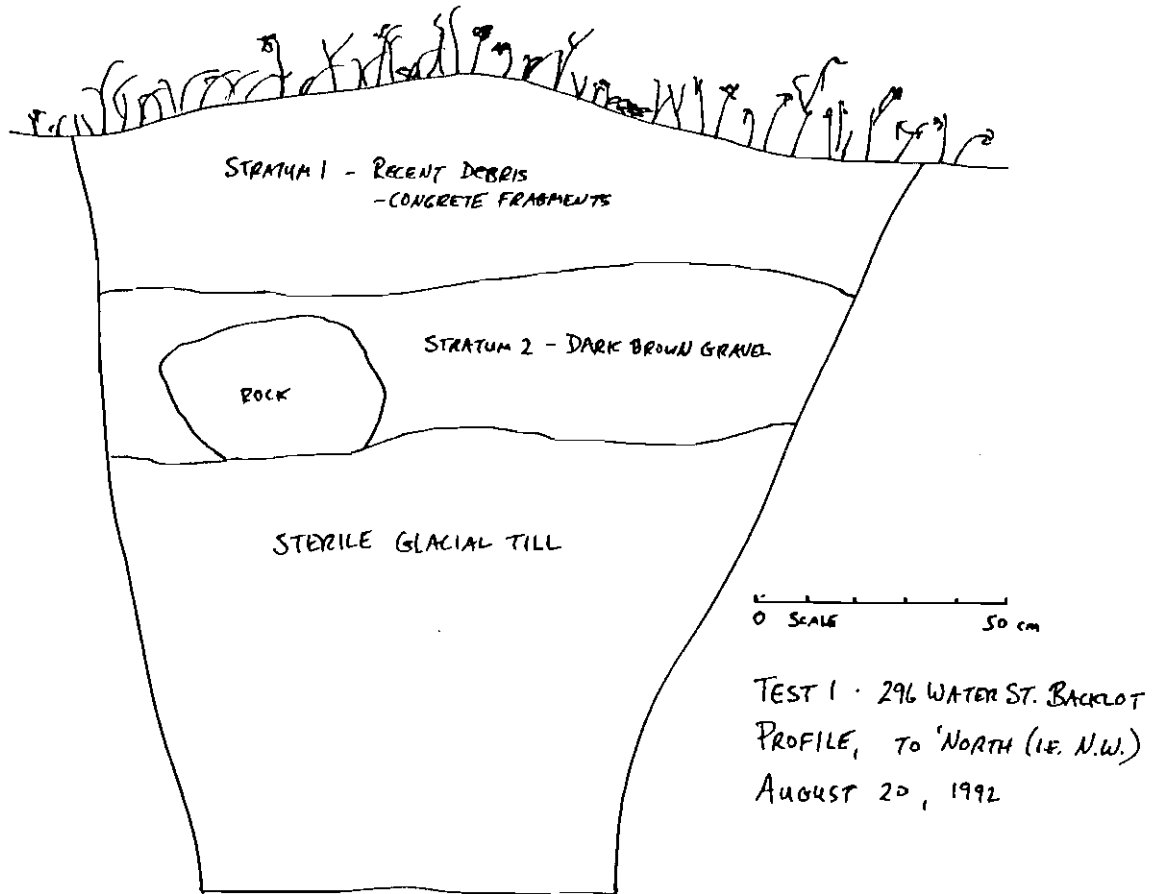 STRATUM 1 - RECENT DEBRIS
- CONCRETE FRAGMENTS
STRATUM 2 - DARK BROWN GRAVEL
ROCK
STERILE GLACIAL TILL
0 SCALE 50 cm
TEST 1 · 296 WATER ST. BACKLOT
PROFILE, TO 'NORTH (I.E. N.W.)
AUGUST 20, 1992